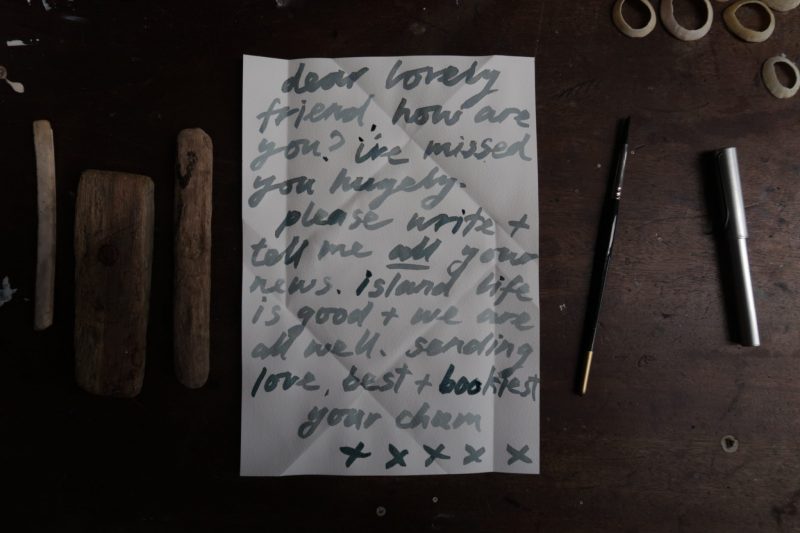 dear lovely
friend, how are
you? i've missed
you hugely.
please write +
tell me all your
news. island life
is good + we are
all well. sending
love, best + bookiest
your chum
x x x x x